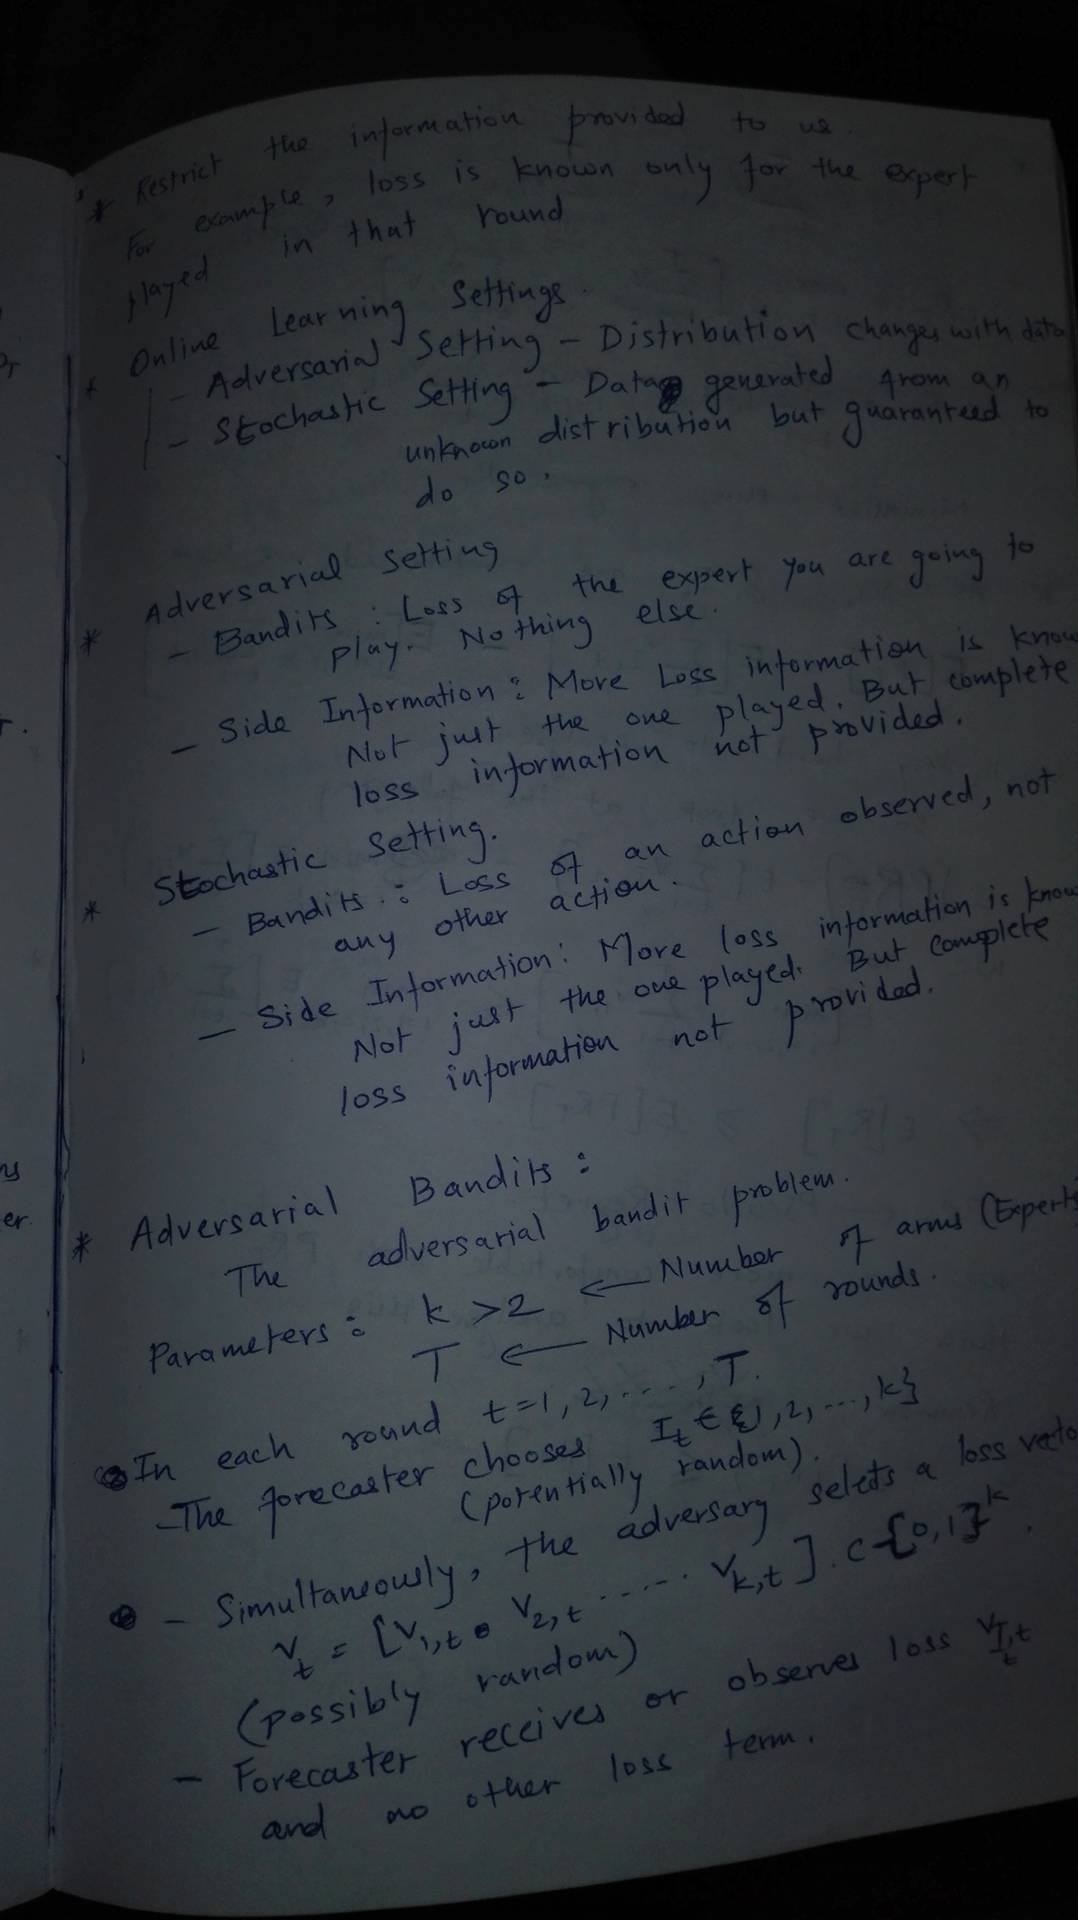 * Restrict the information provided to us.
For example, loss is known only for the expert
played in that round
* Online Learning Settings.
- Adversarial Setting - Distribution changes with data
- Stochastic Setting - Data generated from an
unknown distribution but guaranteed to
do so.
* Adversarial Setting
- Bandits : Loss of the expert you are going to
play. Nothing else.
- Side Information : More Loss information is know
Not just the one played. But complete
loss information not provided.
* Stochastic Setting.
- Bandits : Loss of an action observed, not
any other action.
- Side Information : More loss information is know
Not just the one played. But complete
loss information not provided.
* Adversarial Bandits :
The adversarial bandit problem.
Parameters : k > 2 ← Number of arms (Experts
T ← Number of rounds.
In each round t = 1, 2, ...., T.
- The forecaster chooses I_t ∈ {1, 2, ..., k}
(potentially random).
- Simultaneously, the adversary selects a loss vecto
V_t = [V_{1,t} V_{2,t} ...... V_{k,t}]. ⊂ {0,1}^k.
(possibly random)
- Forecaster receives or observes loss V_{I_t,t}
and no other loss term.